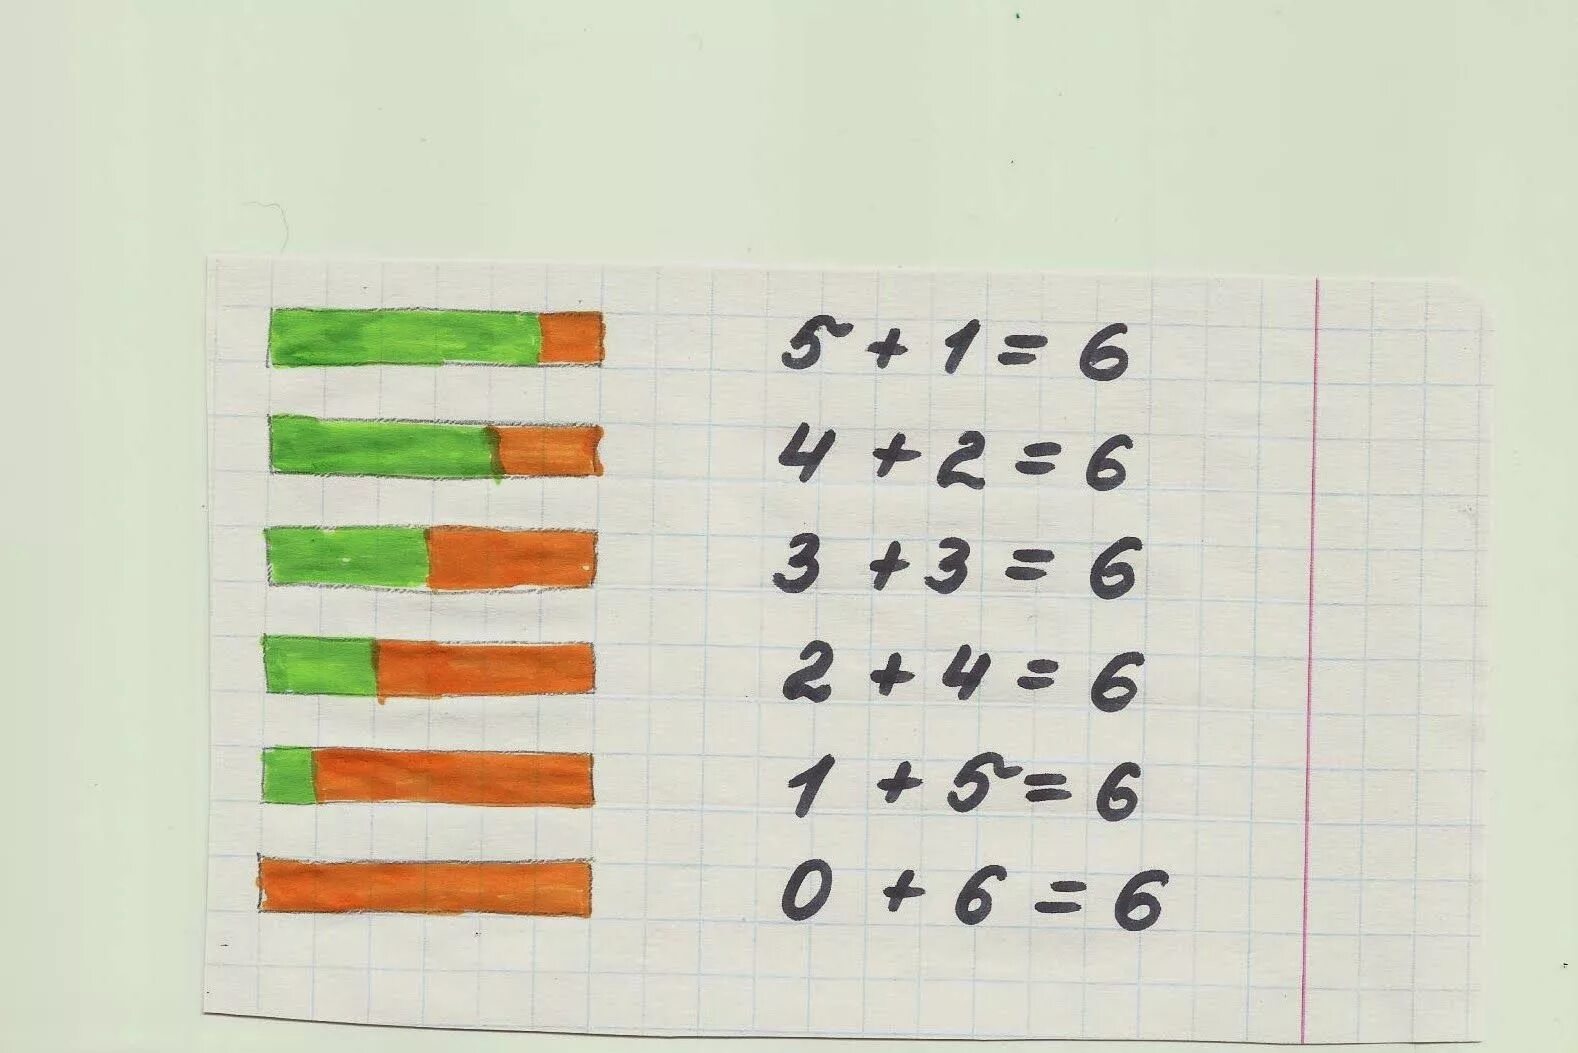 5 + 1 = 6
4 + 2 = 6
3 + 3 = 6
2 + 4 = 6
1 + 5 = 6
0 + 6 = 6